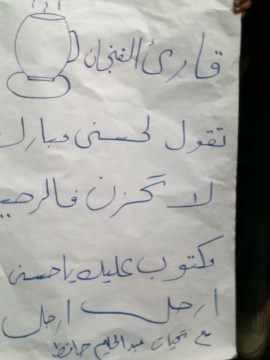 قارئ الفنجان
تقول لحسنى مبارك
لا تحزن فالرحيـ
مكتوب عليك ياحسنى
ارحل ارحل
مع تحيات عبد الحليم حافظ